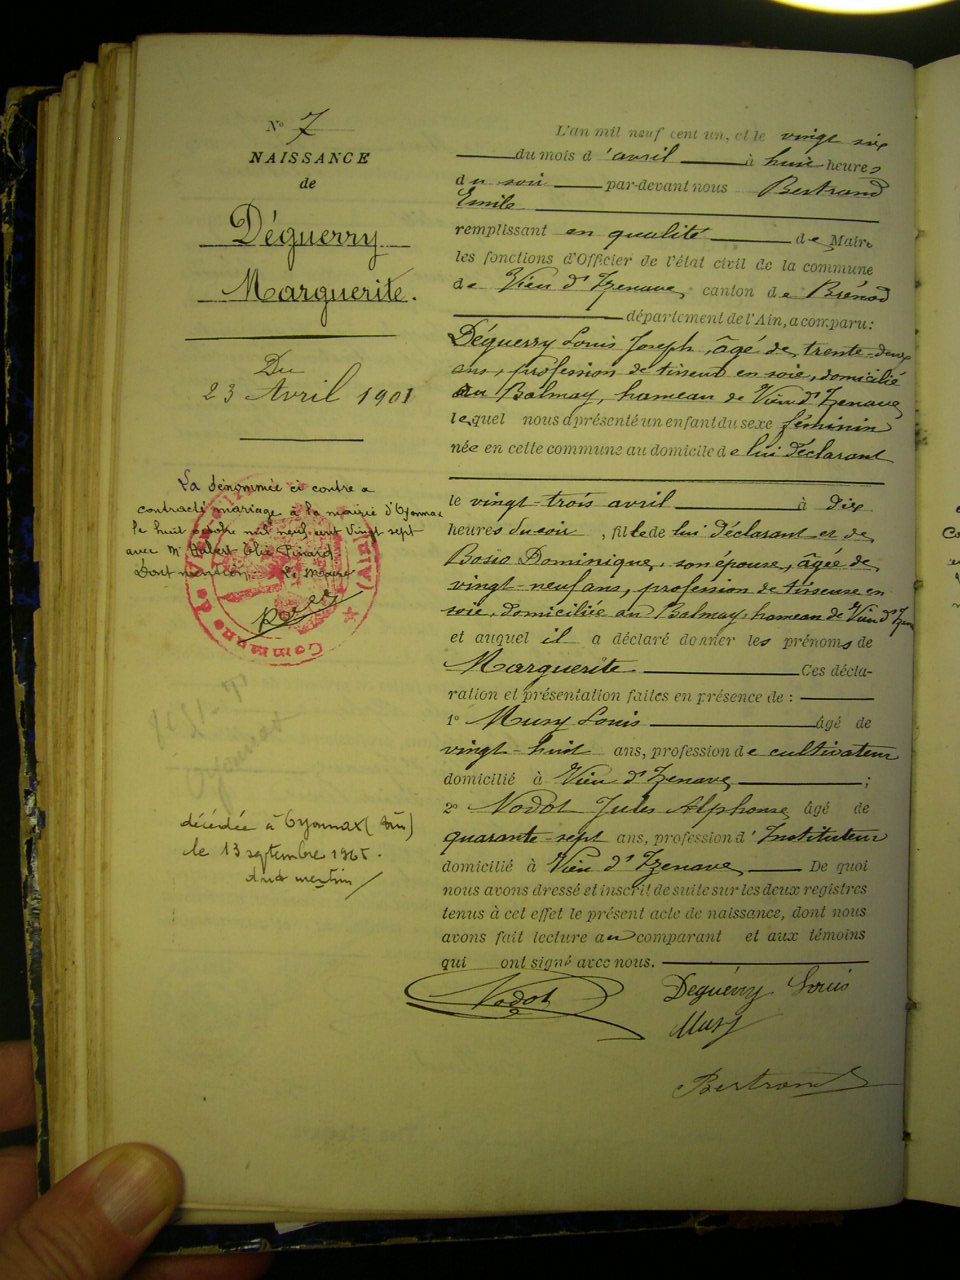 N° 7
NAISSANCE
de
Déguerry
Marguerite.
Du
23 Avril 1901
La dénommée ci contre a
contracté mariage à la mairie d'Oyonnax
le huit octobre mil neuf cent vingt sept
avec Mr Elie Pinard
Dont mention, Le Maire
Commune de (Ain)
décédée à Oyonnax (Ain)
le 13 septembre 1965.
dont mention
L'an mil neuf cent un, et le vingt six
du mois d'avril à huit heures
du soir par-devant nous Bertrand
Emile
remplissant en qualité de Maire
les fonctions d'Officier de l'état civil de la commune
de Vieu d'Izenave, canton de Brénod
département de l'Ain, a comparu :
Déguerry Louis Joseph, âgé de trente-deux
ans, profession de tisseur en soie, domicilié
au Balmay, hameau de Vieu d'Izenave,
lequel nous a présenté un enfant du sexe féminin
née en cette commune au domicile de lui déclarant
le vingt-trois avril à dix
heures du soir, fille de lui déclarant et de
Bosio Dominique, son épouse, âgée de
vingt-neuf ans, profession de tisseuse en
soie, domiciliée au Balmay, hameau de Vieu d'Izen
et auquel il a déclaré donner les prénoms de
Marguerite Ces décla-
ration et présentation faites en présence de :
1° Musy Louis âgé de
vingt-huit ans, profession de cultivateur
domicilié à Vieu d'Izenave ;
2° Nodot Jules Alphonse, âgé de
quarante-sept ans, profession d'Instituteur
domicilié à Vieu d'Izenave De quoi
nous avons dressé et inscrit de suite sur les deux registres
tenus à cet effet le présent acte de naissance, dont nous
avons fait lecture au comparant et aux témoins
qui ont signé avec nous.
Nodot Deguerry Louis
Musy
Bertrand